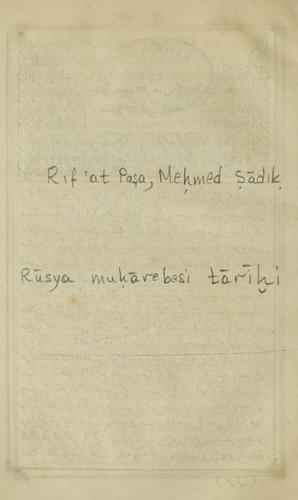 Rıf‘at Paşa, Meḥmed Ṣādıḳ
Rūsya muḥārebesi tārīḫi